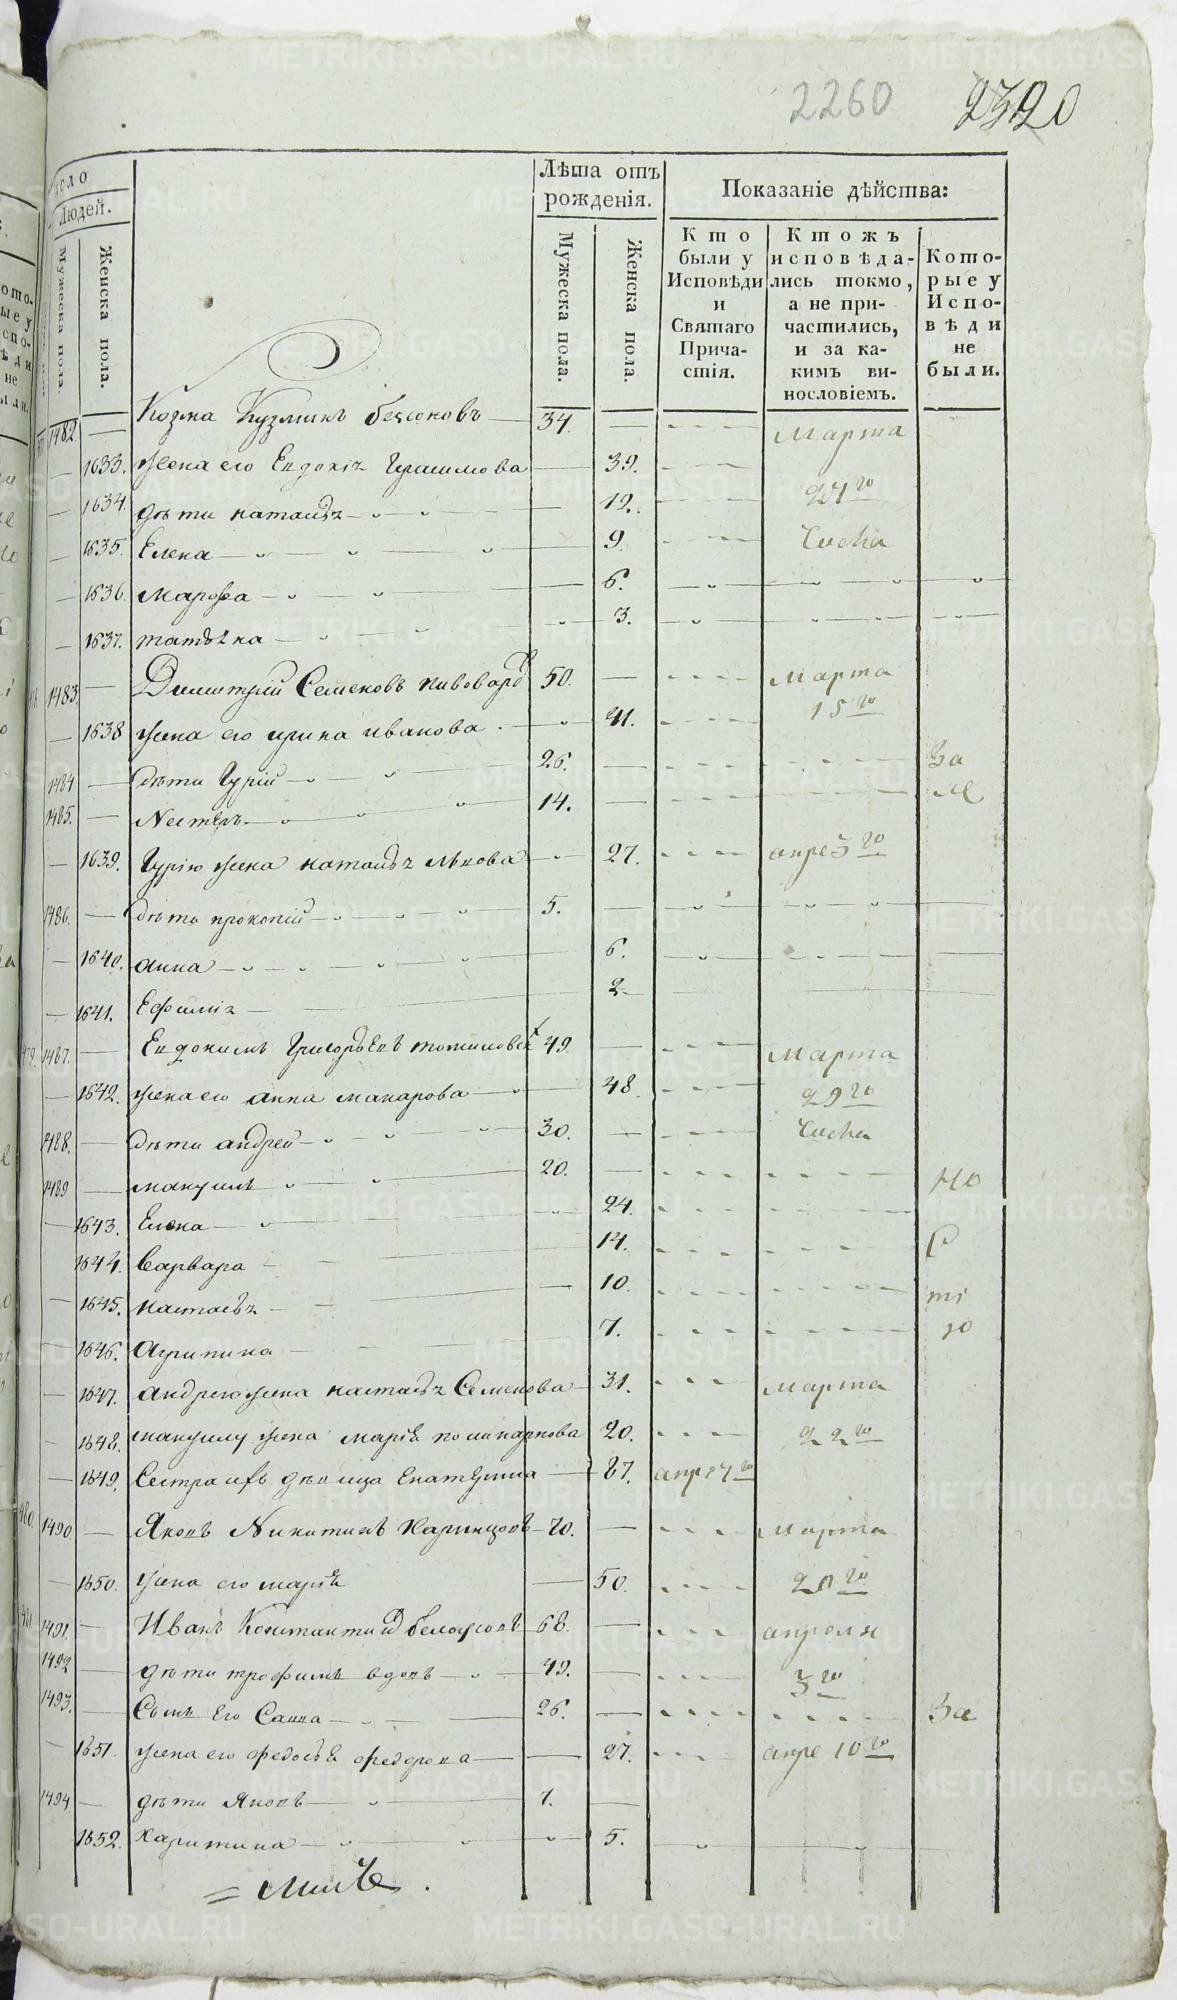 2260 2320
Число
Людей.
Мужеска пола.
Женска пола.
Лѣта отъ рожденія.
Мужеска пола.
Женска пола.
Показаніе дѣйства:
Кто были у Исповѣди и Святаго Причастія.
Ктожъ исповѣдались токмо, а не причастились, и за какимъ винословіемъ.
Которые у Исповѣди не были.
1482. Козма Кузминъ 34. Марта
1633. жена его Евдокія 39.
1634. дѣти наталья 12. 24го
1635. Елена 9.
1636. Марфа 6.
1637. татьяна 3.
1483. Димитрій Семеновъ пивоваровъ 50. Марта
1638 жена его ирина иванова 41. 15го
1484 дѣти Гурій 26. За
1485. Нестеръ 14.
1639. Гурію жена наталья 27. апре 3го
1486. дѣти прокопій 5.
1640. анна 6.
1641. Ефимія 2
1487. Евдокимъ Григорьевъ 49. Марта
1642. жена его анна макарова 48. 29го
1488. дѣти андрей 30.
1489 мануилъ 20. но
1643. Елена 24.
1644. Варвара 14. С
1645. настасья 10. ті
1646. Агрипина 7. ю
1647. андрею жена настасья Семенова 31. Марта
1648. мануилу жена марья 20. 22го
1649. Сестра ихъ дѣвица Екатерина 87. апре 4го
1490 Яковъ Никитинъ 70. Марта
1650. жена его марья 50. 20го
1491. Иванъ 68. апреля
1492 дѣти трофимъ вдовъ 49. 3го
1493. Сынъ Его Савва 26. За
1651. жена его федосья федорова 27. апре 10го
1494 дѣти Яковъ 7.
1652. Харитина 5.
METRIKI.GASO-URAL.RU